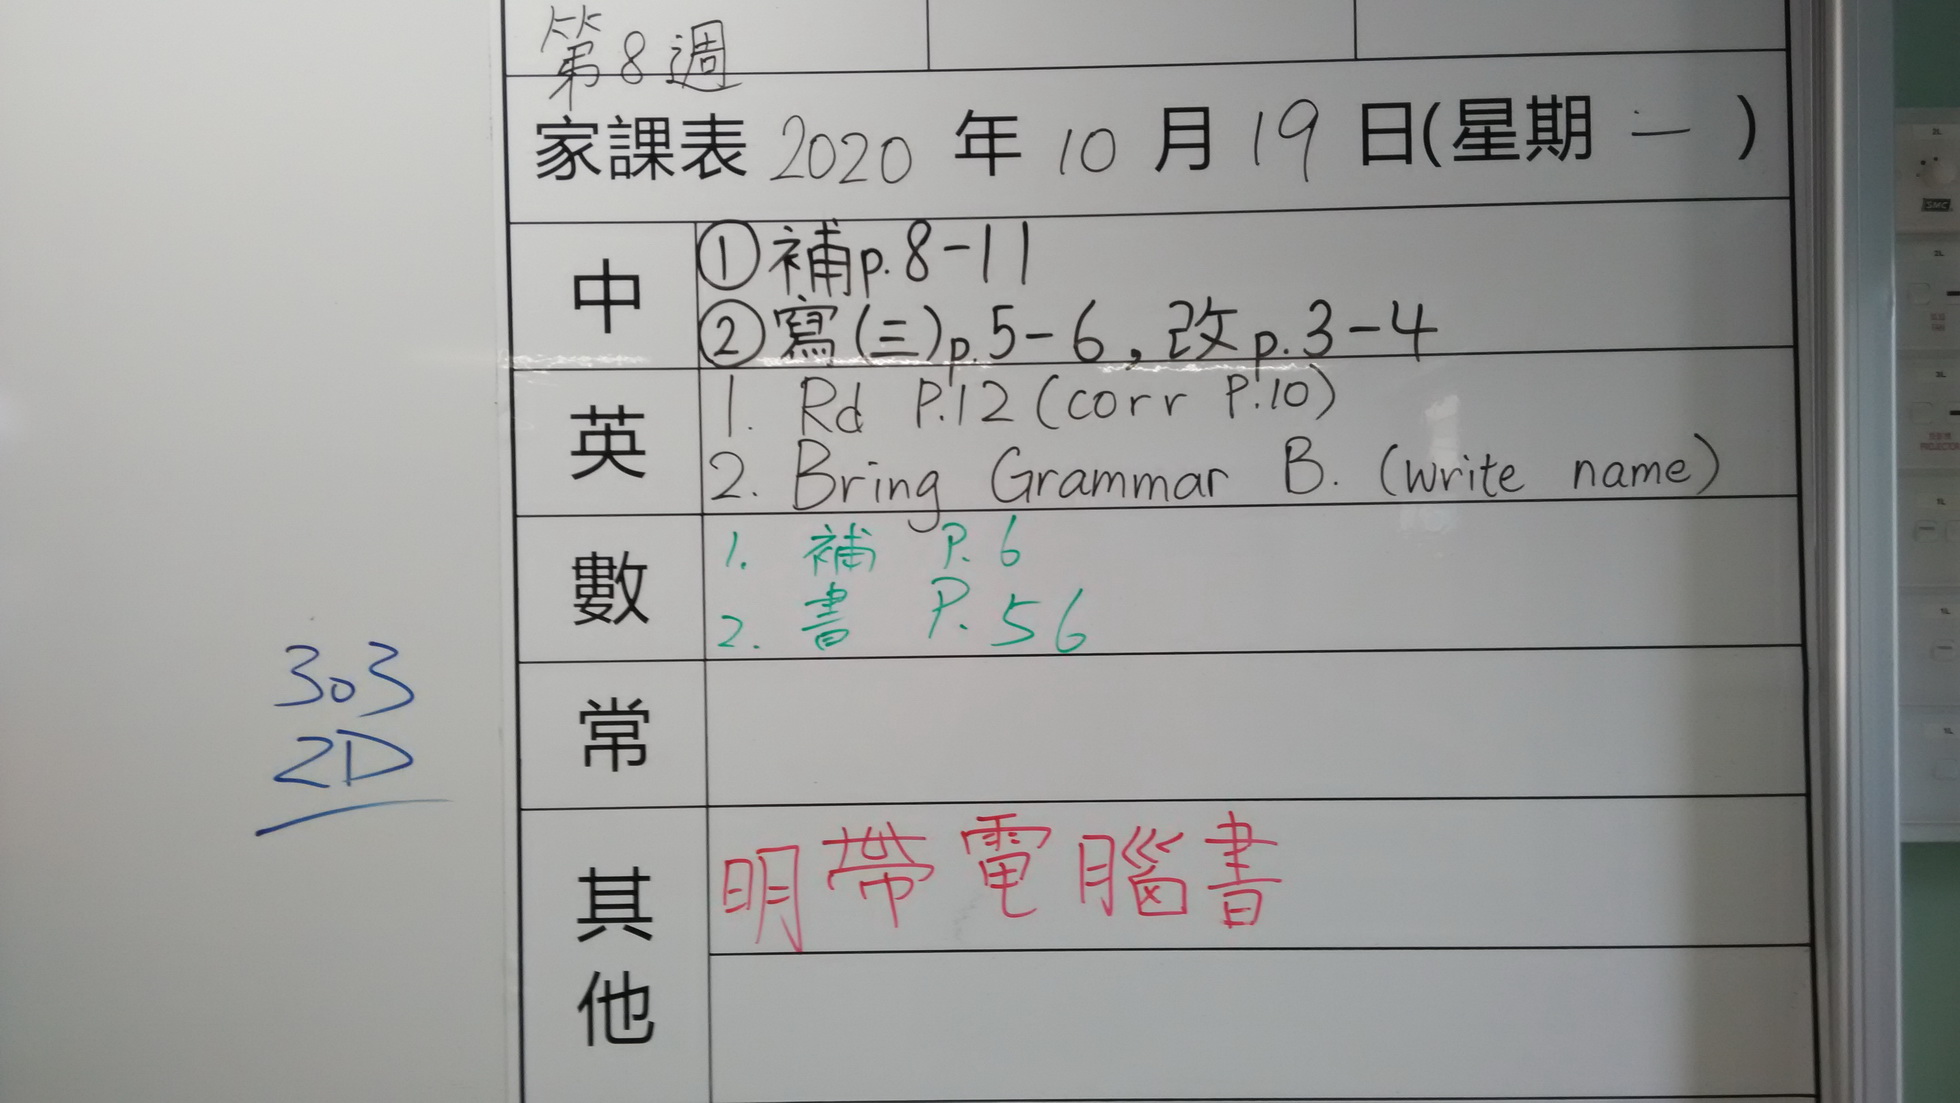 第8週
家課表 2020 年 10 月 19 日(星期 一 )
中
① 補p.8-11
② 寫(三)p.5-6, 改p.3-4
英
1. Rd P.12 (corr P.10)
2. Bring Grammar B. (write name)
數
1. 補 P.6
2. 書 P.56
常
其他
明帶電腦書
303
2D
SMC